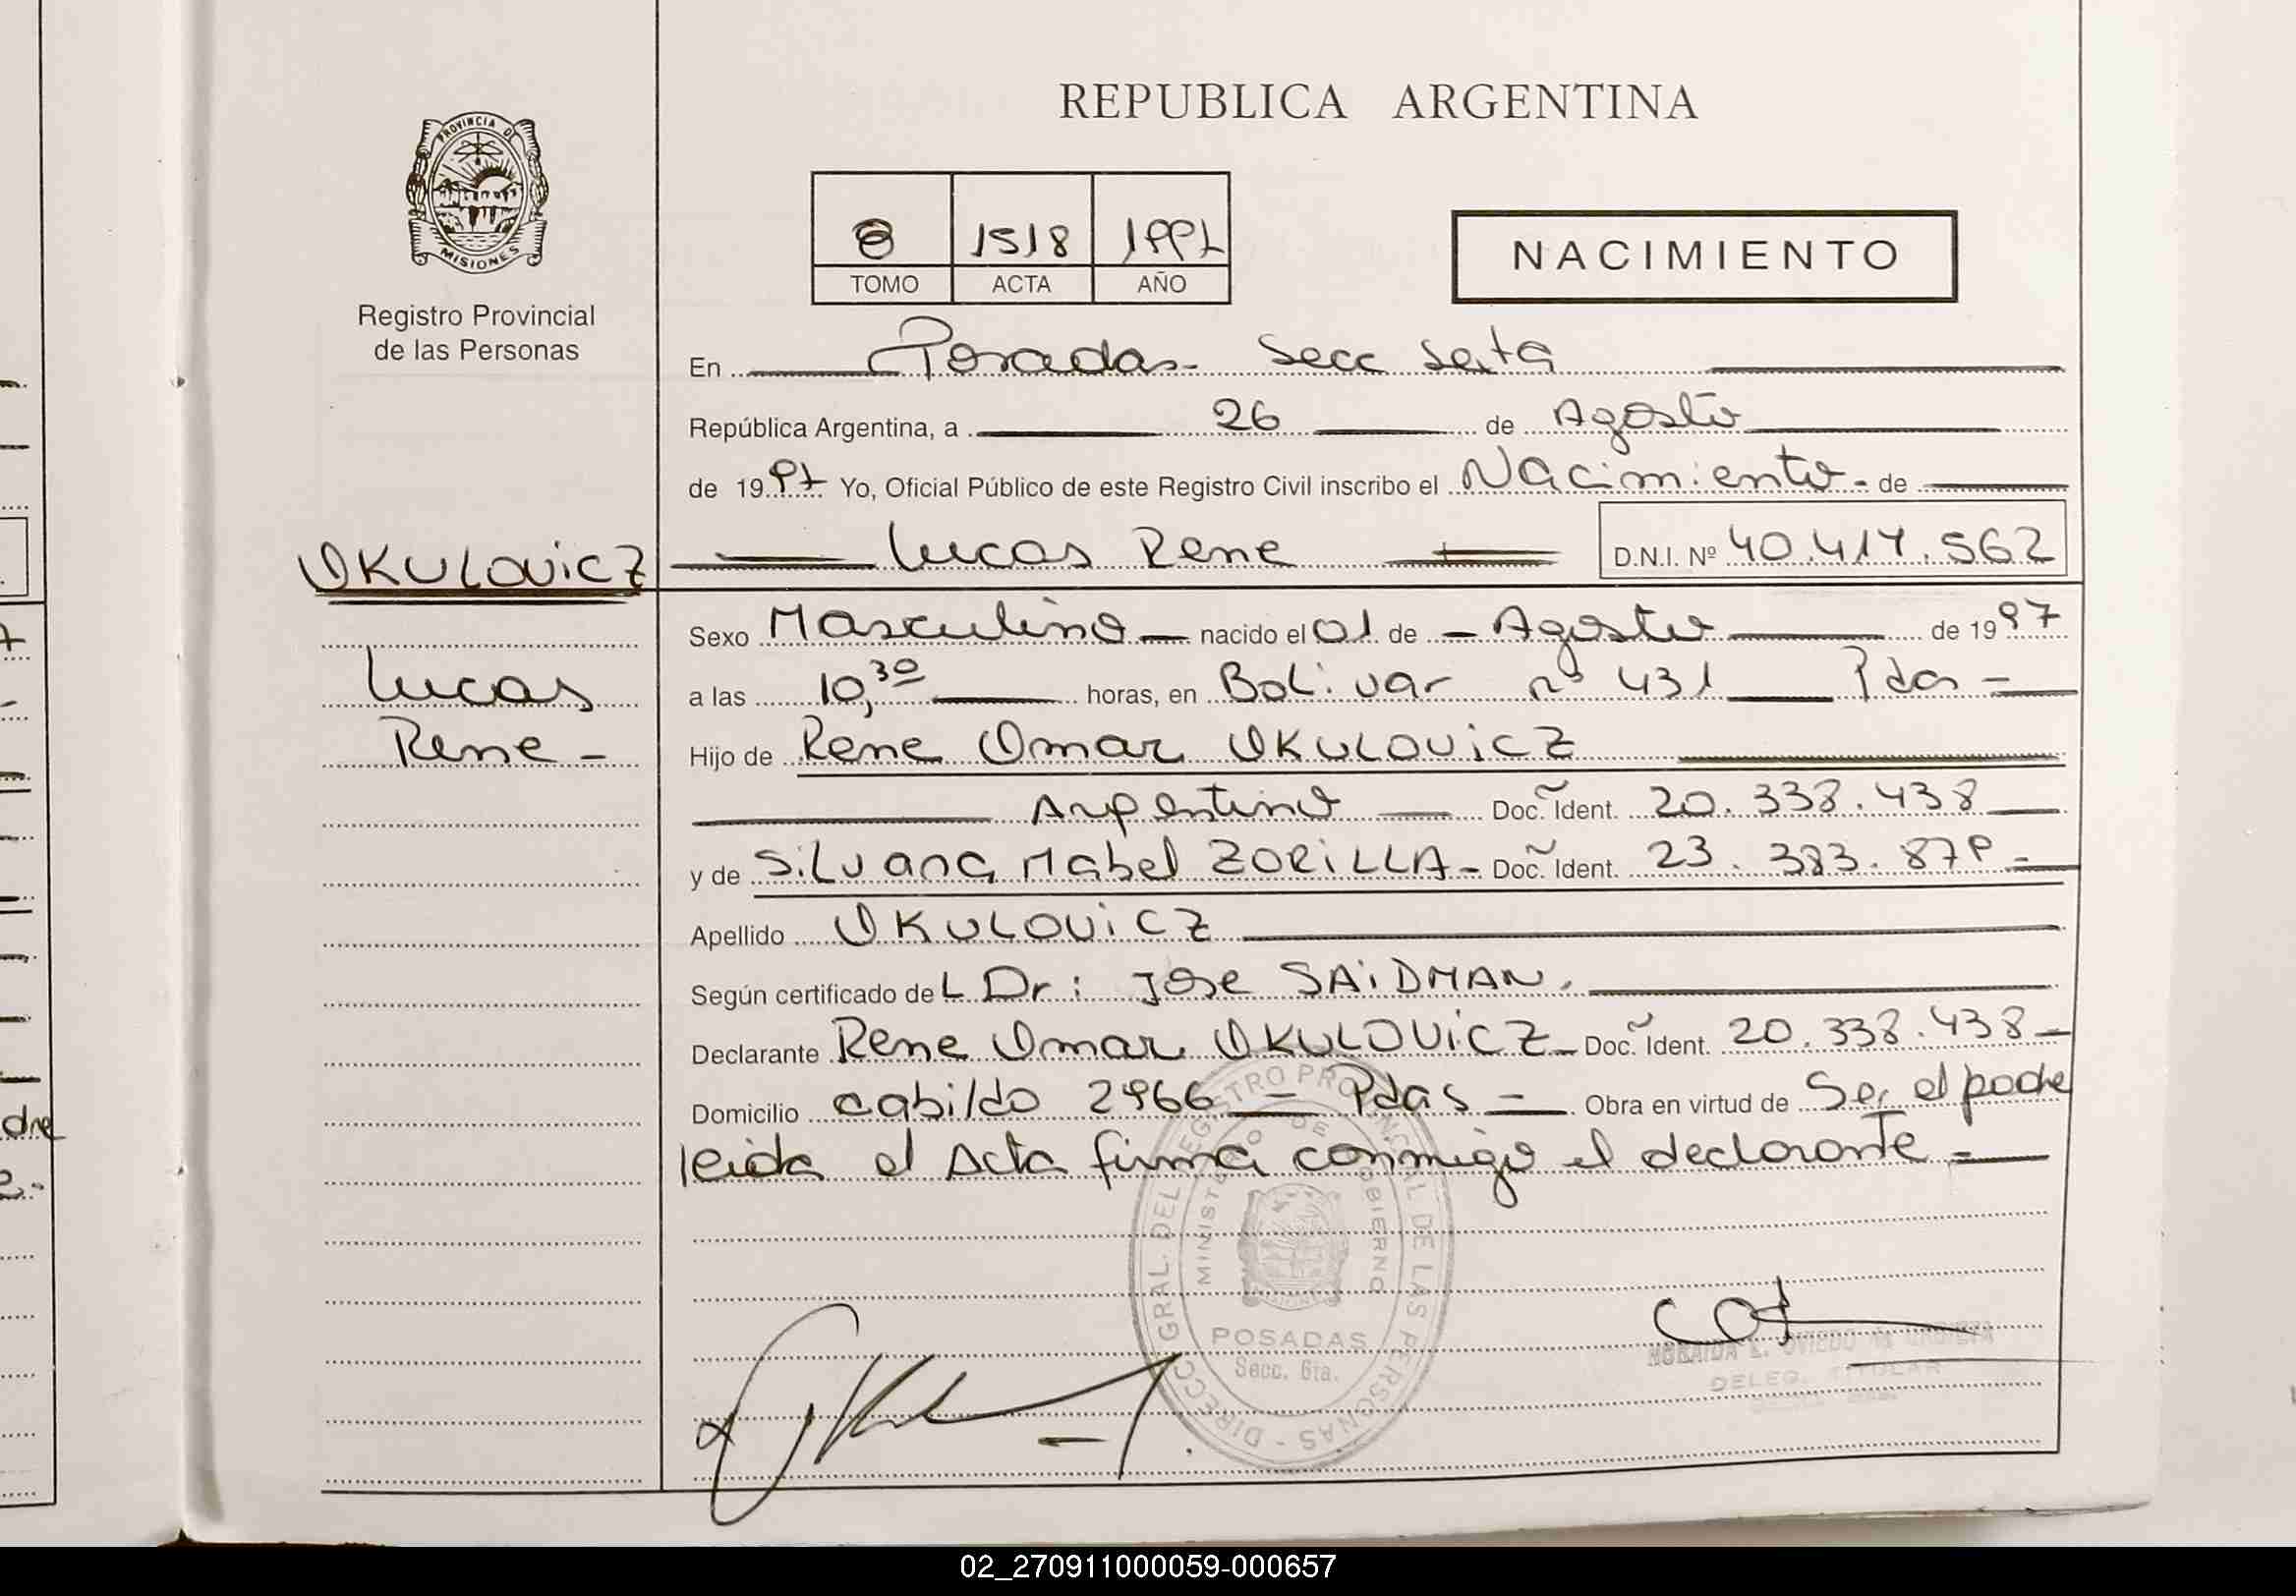 REPUBLICA ARGENTINA
PROVINCIA DE
MISIONES
Registro Provincial
de las Personas
8 1518 1997
TOMO ACTA AÑO
NACIMIENTO
En Posadas - Secc Sexta
República Argentina, a 26 de Agosto
de 1997 Yo, Oficial Público de este Registro Civil inscribo el Nacimiento - de
OKULOVICZ
Lucas
Rene -
Lucas Rene D.N.I. Nº 40.417.562
Sexo Masculino nacido el 01 de Agosto de 1997
a las 10,30 horas, en Bolivar nº 431 Pdas -
Hijo de Rene Omar OKULOVICZ
Argentino Doc. Ident. 20.338.438
y de Silvana Mabel ZORILLA - Doc. Ident. 23.383.879 -
Apellido OKULOVICZ
Según certificado del Dr: Jose SAIDMAN.
Declarante Rene Omar OKULOVICZ - Doc. Ident. 20.338.438 -
Domicilio cabildo 2966 - Pdas - Obra en virtud de Ser el padre
leida el Acta firma conmigo el declarante -
DIRECC. GRAL. DEL REGISTRO PROVINCIAL DE LAS PERSONAS -
MINISTERIO DE GOBIERNO
POSADAS
Secc. 6ta.
L. OVIEDO de
DELEG. TITULAR
dre
02_270911000059-000657